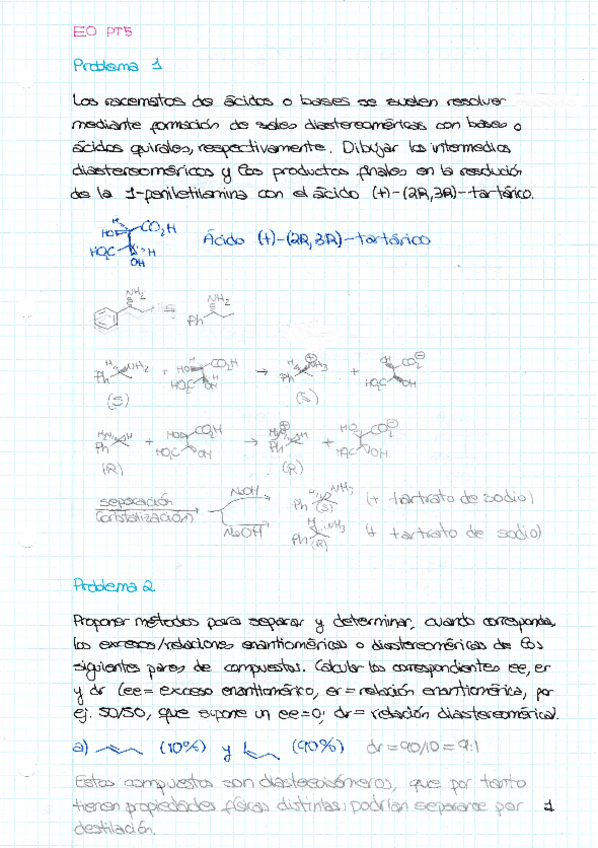 EO PT5
Problema 1
Los racematos de ácidos o bases se suelen resolver
mediante formación de sales diastereoméricas con bases o
ácidos quirales, respectivamente. Dibujar los intermedios
diastereoméricos y los productos finales en la resolución
de la 1-feniletilamina con el ácido (+)-(2R,3R)-tartárico.
H
HO CO₂H
HO₂C H
OH
Ácido (+)-(2R,3R)-tartárico
NH₂ NH₂
S
Ph
H NH₂ + HO CO₂H → H NH₃ + CO₂⊖
Ph HO₂C OH Ph HO₂C OH
(S) (S)
H₂N H + HO CO₂H → H + HO CO₂⊖
Ph HO₂C OH Ph HO₂C OH
(R) (R)
separación
(cristalización)
NaOH Ph NH₂ (S) (+ tartrato de sodio)
NaOH Ph H NH₂ (R) (+ tartrato de sodio)
Problema 2
Proponer métodos para separar y determinar, cuando corresponda,
los excesos/relaciones enantioméricos o diastereoméricos de los
siguientes pares de compuestos. Calcular los correspondientes ee, er
y dr (ee = exceso enantiomérico, er = relación enantiomérica, por
ej. 50/50, que supone un ee=0; dr = relación diastereomérica).
a) (10%) y (90%) dr = 90/10 = 9:1
Estos compuestos son diastereoisómeros, que por tanto
tienen propiedades físicas distintas: podrían separarse por
destilación.
1